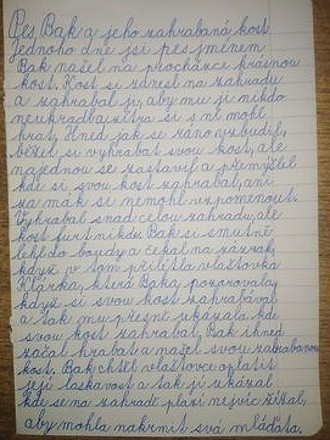 Pes Bak a jeho zahrabaná kost
Jednoho dne jsi pes jménem
Bak našel na procházce krásnou
kost. Kost si zdnesl na zahradu
a zahrabal ji, aby mu ji nikdo
neukradl a zítra si s ní mohl
hrát. Hned jak se ráno vzbudil,
běžel si vyhrabat svou kost, ale
najednou se zastavil a přemýšlel
kde si svou kost zahrabal, ani
za mák si nemohl vzpomenout.
Vyhrabal snad celou zahradu, ale
kost furt nikde. Bak si smutně
lehl do boudy a čekal na zázrak,
když v tom přilétla vlaštovka
Klárka, která Baka pozorovala,
když si svou kost zahrabával
a tak mu přesně ukázala kde
svou kost zahrabal. Bak ihned
začal hrabat a našel svou zahrabanou
kost. Bak chtěl vlaštovce oplatit
její laskavost a tak jí ukázal
kde se na zahradě plazí nejvíc žížal,
aby mohla nakrmit svá mláďata.